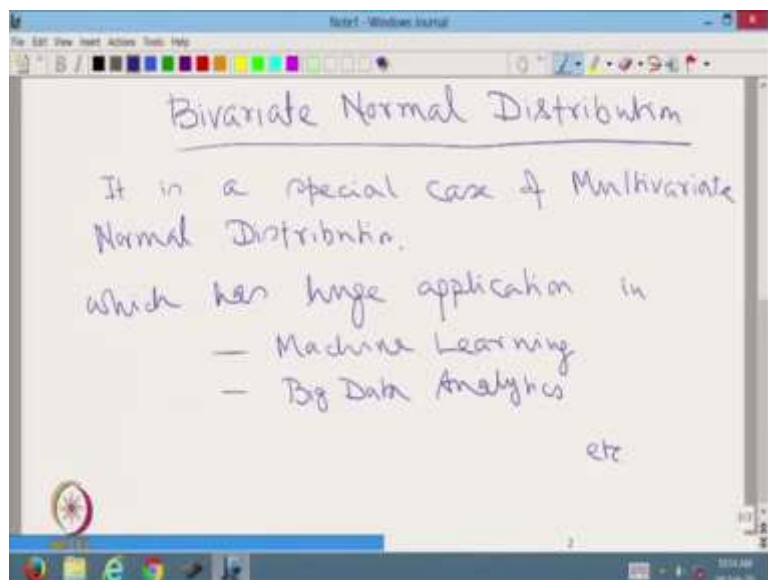 Note1 - Windows Journal
File Edit View Insert Actions Tools Help
Bivariate Normal Distribution
It is a special case of Multivariate
Normal Distribution.
which has huge application in
— Machine Learning
— Big Data Analytics
etc
2